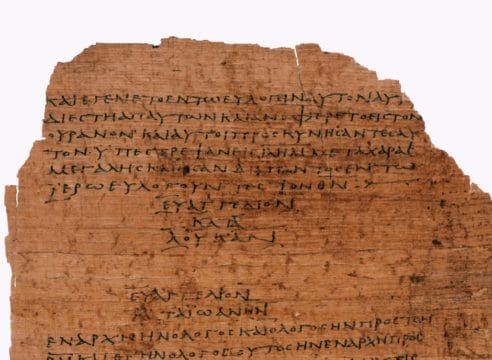 ΚΑΙΕΓΕΝΕΤΟΕΝΤΩΕΥΛΟΓΕΙΝΑΥΤΟΝΑΥΤ
ΔΙΕϹΤΗΑΠΑΥΤΩΝΚΑΙΑΝΕΦΕΡΕΤΟΕΙϹΤΟΝ
ΟΥΡΑΝΟΝΚΑΙΑΥΤΟΙΠΡΟϹΚΥΝΗϹΑΝΤΕϹΑΥ
ΤΟΝΥΠΕϹΤΡΕΨΑΝΕΙϹΙΛΗΜΜΕΤΑΧΑΡΑϹ
ΜΕΓΑΛΗϹΚΑΙΗϹΑΝΔΙΑΠΑΝΤΟϹΕΝΤΩ
ΙΕΡΩΕΥΛΟΓΟΥΝΤΕϹΤΟΝΘΝ
ΕΥΑΓΓΕΛΙΟΝ
ΚΑΤΑ
ΛΟΥΚΑΝ
ΕΥΑΓΓΕΛΙΟΝ
ΚΑΤΑΙΩΑΝΗΝ
ΕΝΑΡΧΗΗΝΟΛΟΓΟϹΚΑΙΟΛΟΓΟϹΗΝΠΡΟϹΤΟΝ
ΟΛΟΓΟϹΟΥΤΟϹΗΝΕΝΑΡΧΗΠΡΟϹ